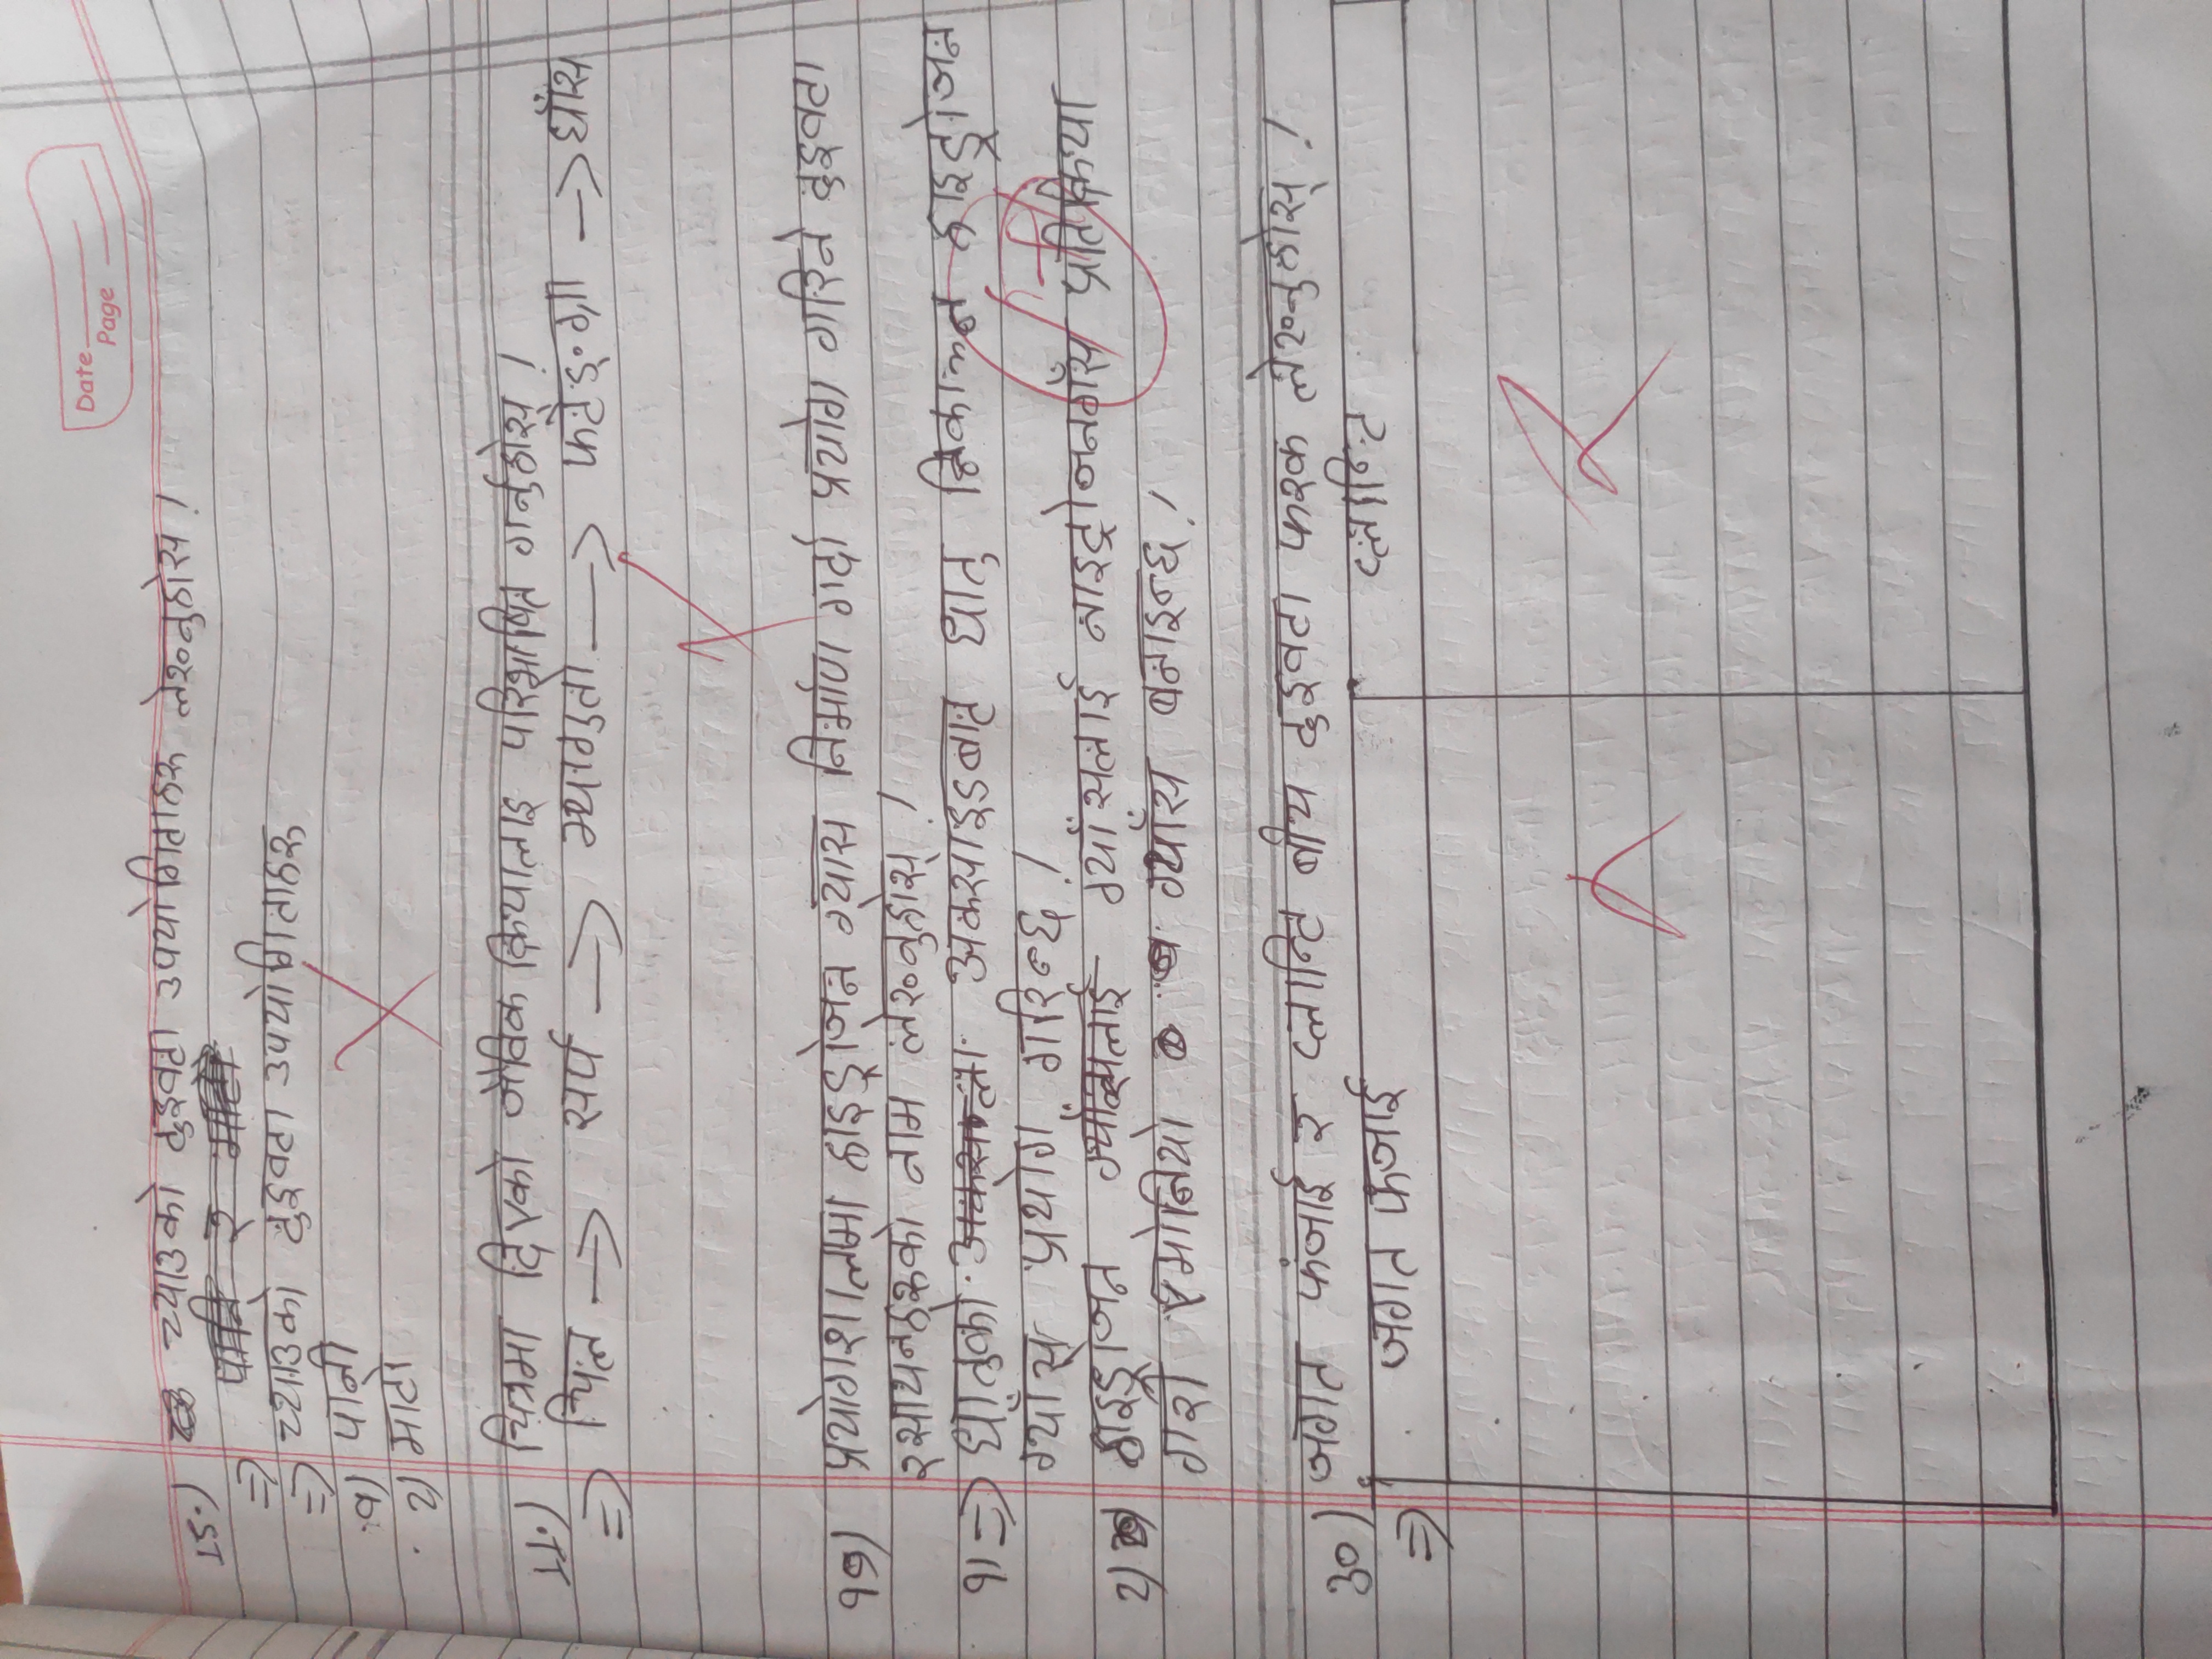 Date
Page
15.) च्याउको दुइवटा उपयोगिताहरू लेख्नुहोस !
=> पानि र माटो
=> च्याउको दुइवटा उपयोगिताहरू
१) पानी
२) माटो
11.) चित्रमा दिएको जैविक क्रियालाइ परिभाषित गर्नुहोस् !
=> चिल -> सर्प -> भ्यागुतो -> फटैङ्ग्रा -> घाँस
१७) प्रयोगशालामा हाइड्रोजन ग्यास निर्माण गर्दा प्रयोग गरिने दुइवटा
रसायनहरूको नाम लेख्नुहोस् !
१) => धातुको अक्सोइडबाट धातु निकाल्न हाइड्रोजन
ग्याँस प्रयोग गरिन्छ !
२) हाइड्रोजन ग्याँसलाई नाइट्रोजनगाँस प्रतिक्रिया
गरी एमोनियो ग्याँस बनाइन्छ !
30) जगत फंजाई र प्लान्टि बीच दुइवटा फरक लेख्नुहोस् !
=> जगत फंजाई प्लान्टि